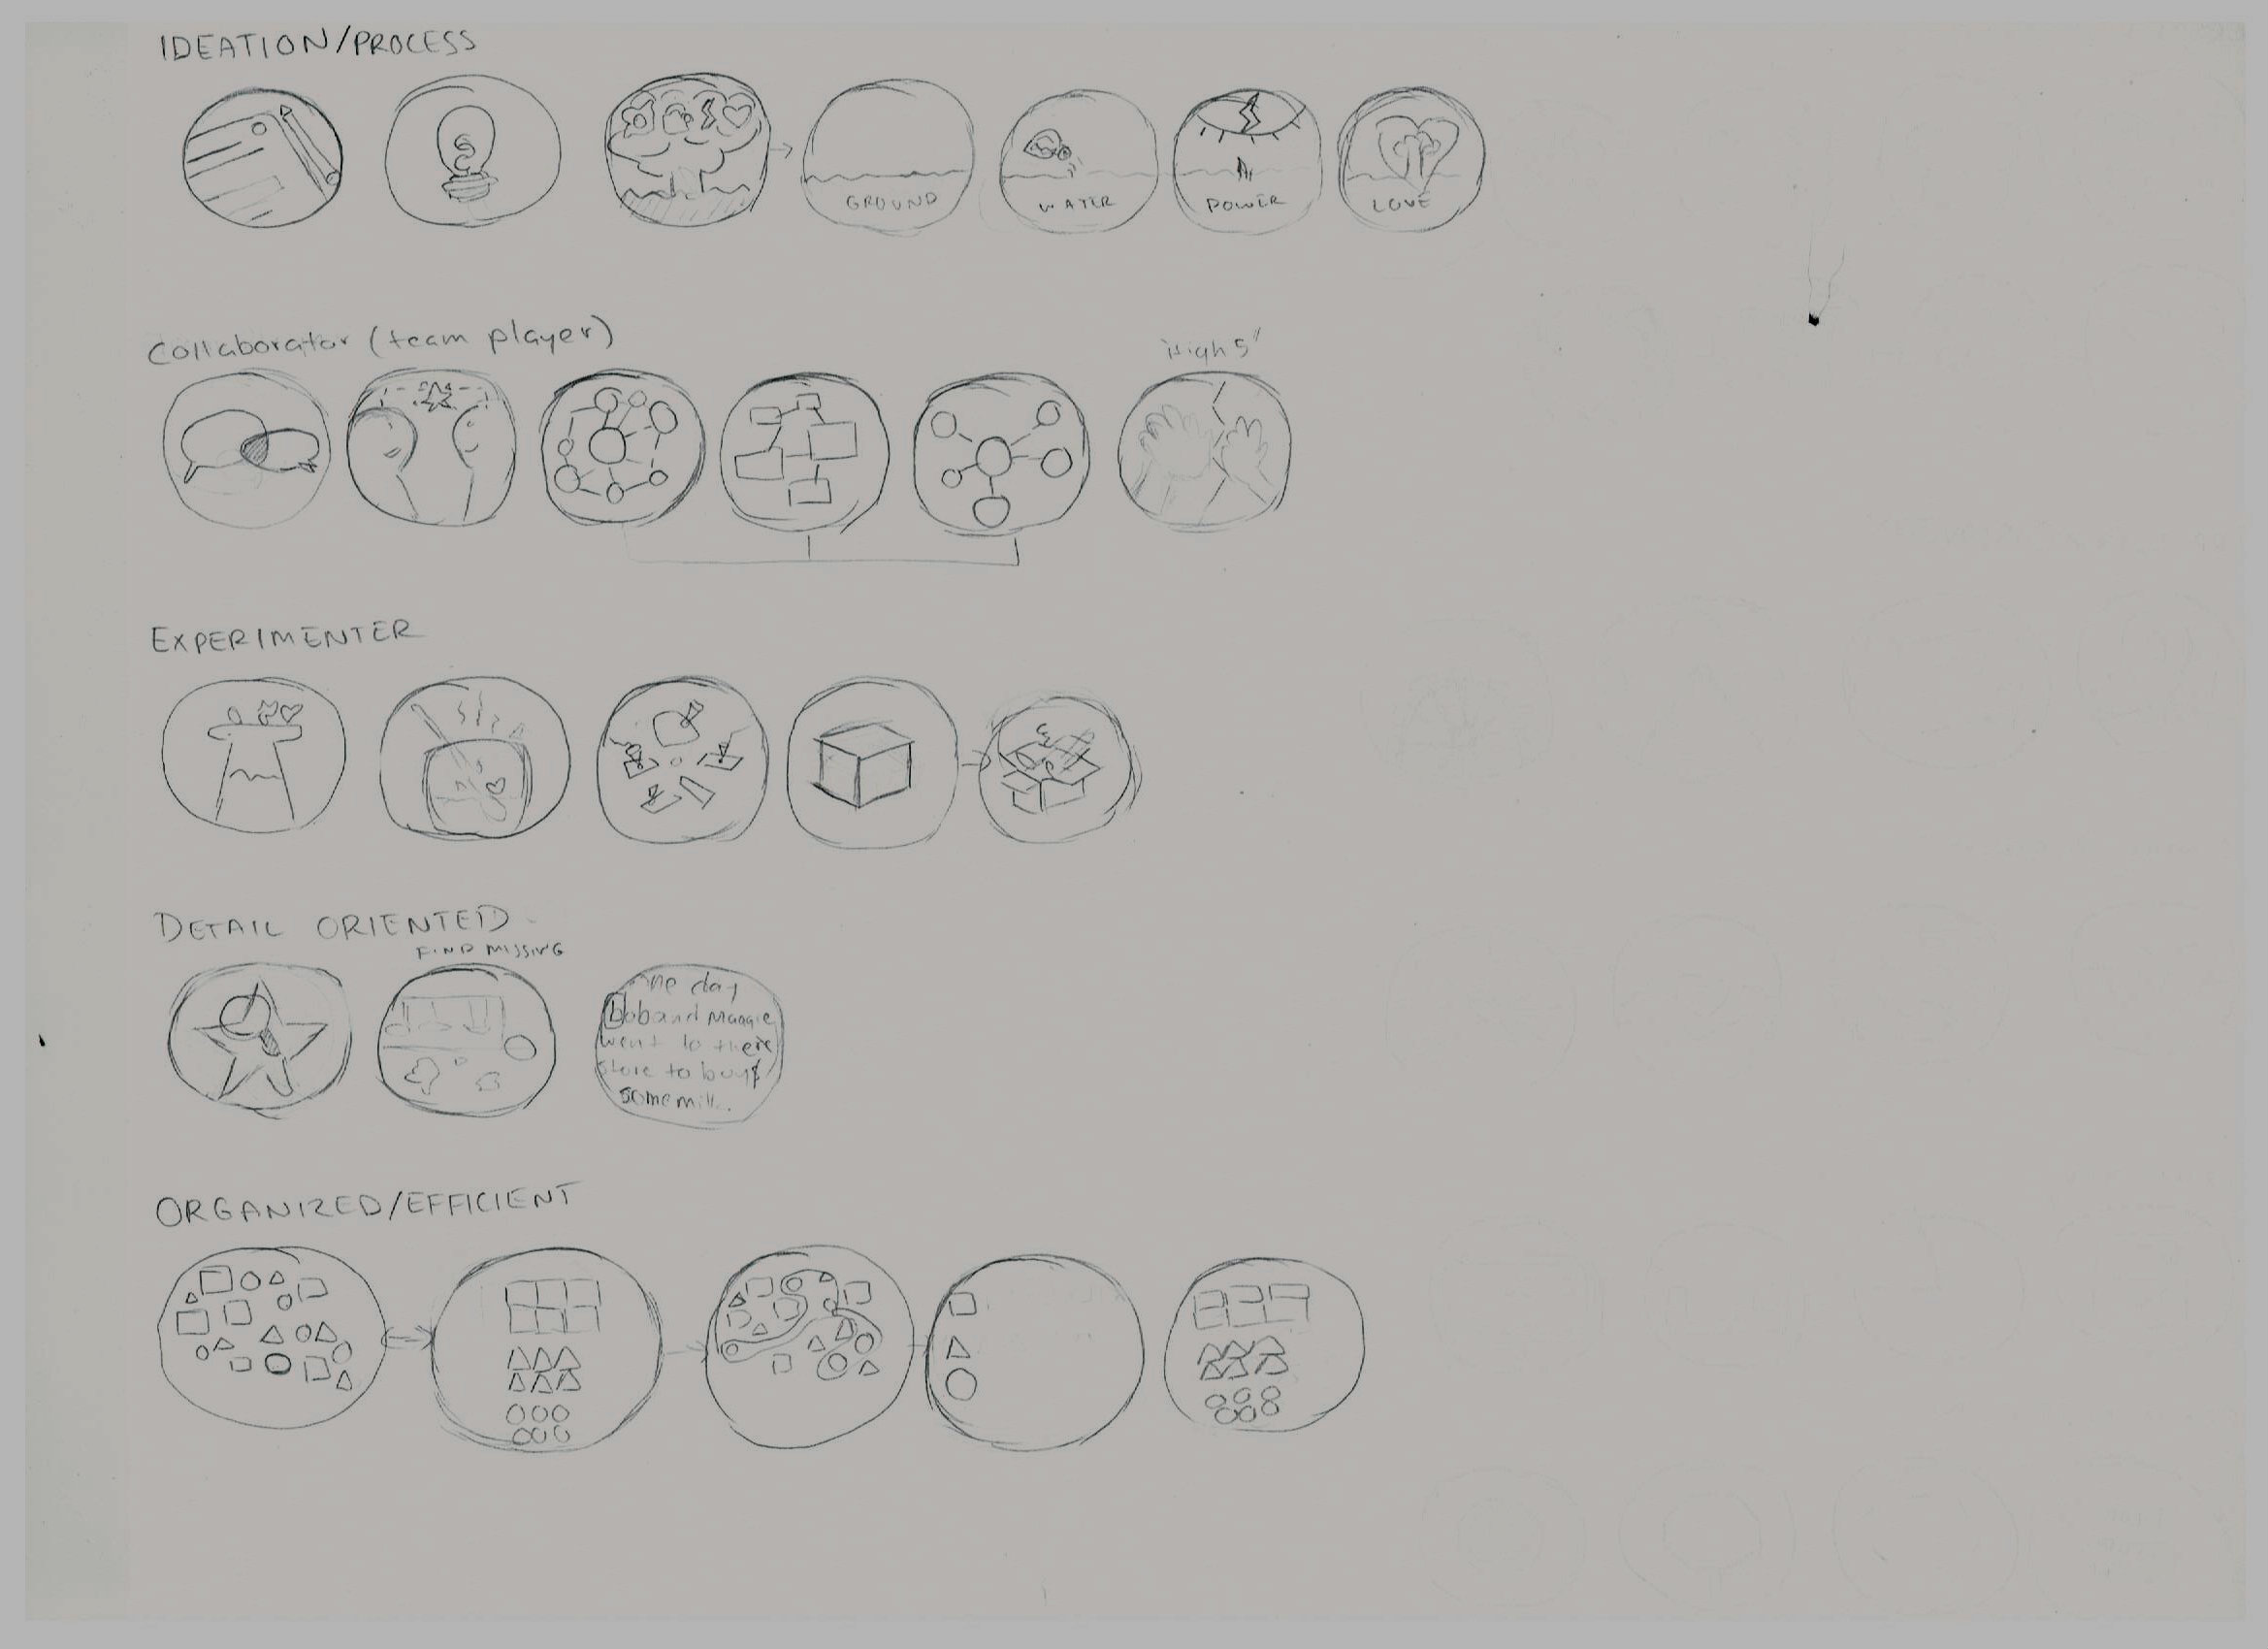 IDEATION/PROCESS
GROUND
WATER
POWER
LOVE
Collaborator (team player)
"High 5"
EXPERIMENTER
DETAIL ORIENTED
FIND MISSING
one day
bob and Maggie
went to there
store to buy
some milk.
ORGANIZED/EFFICIENT